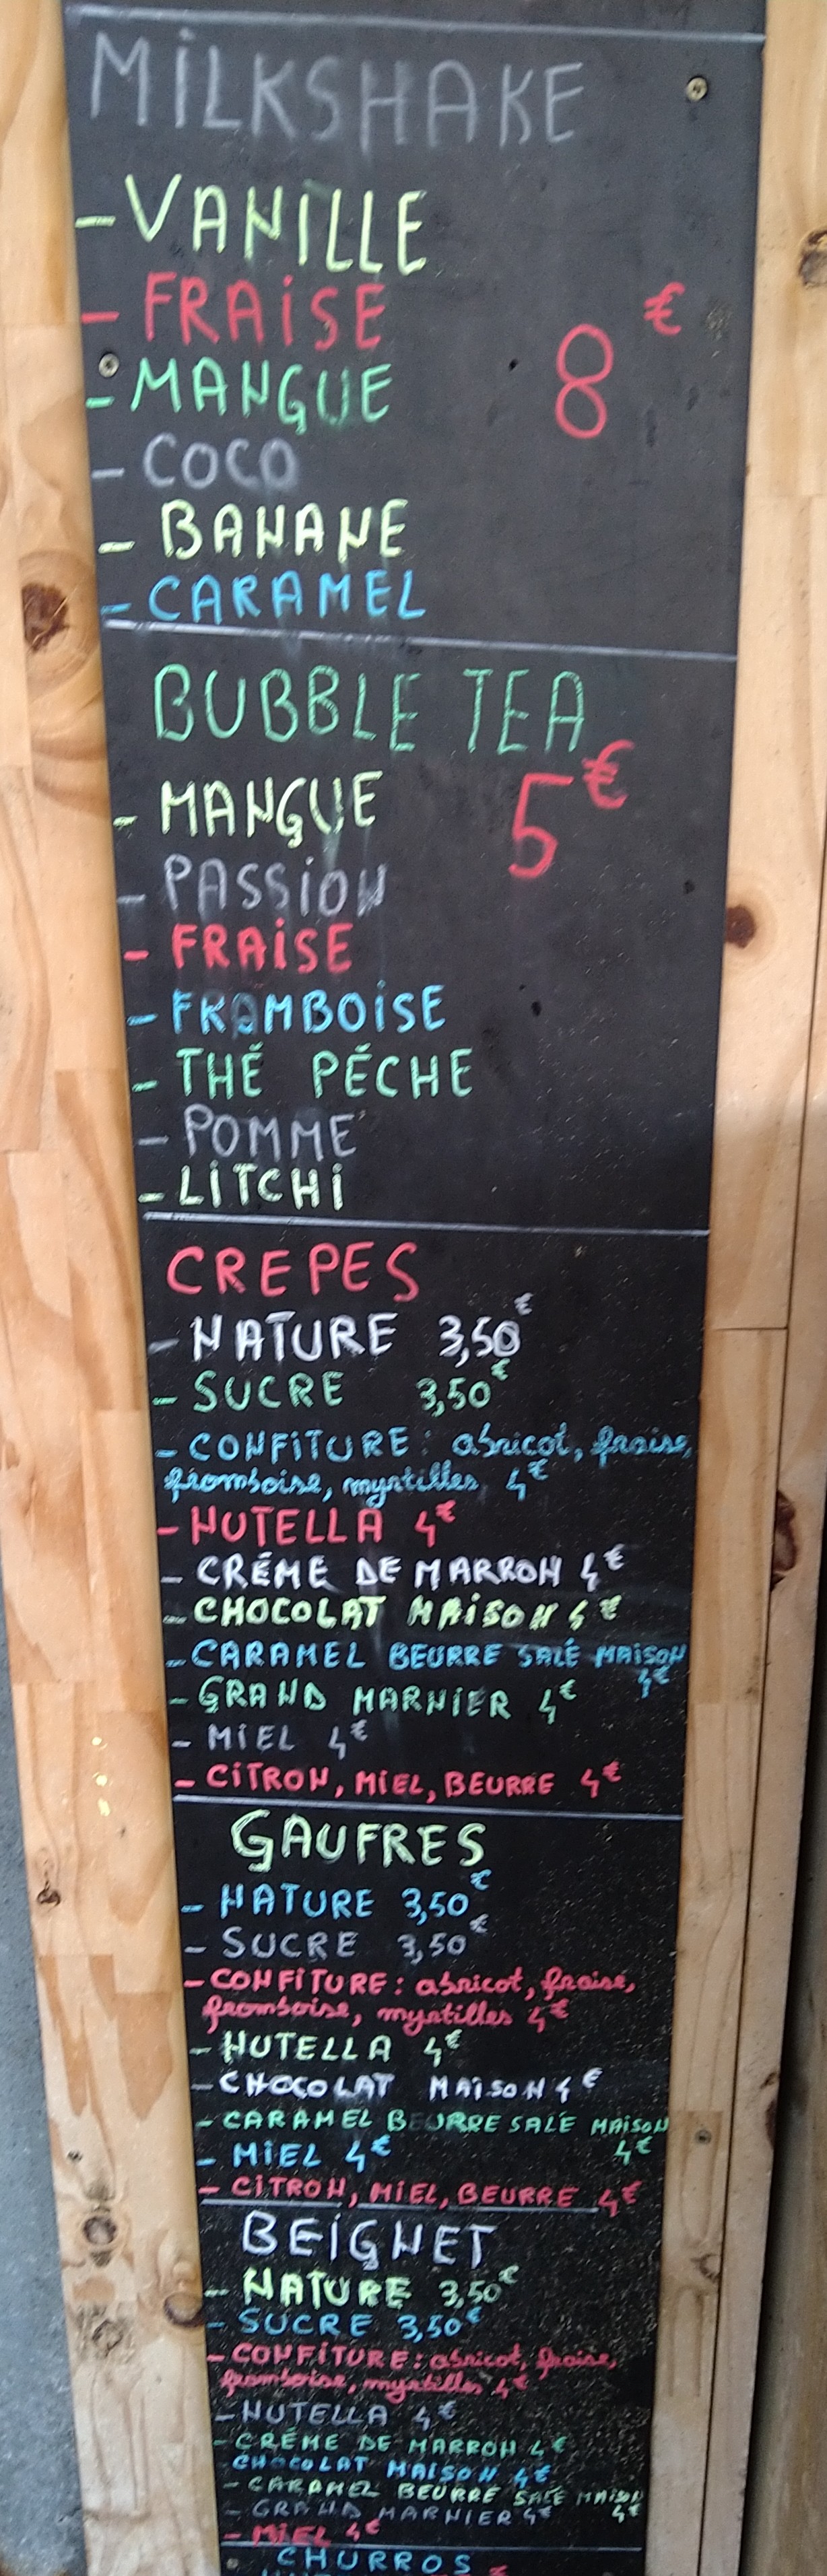 MiLKSHAKE
- VANiLLE
- FRAiSE
8 €
- MANGUE
- COCO
- BANANE
- CARAMEL
BUBBLE TEA
5 €
- MANGUE
- PASSiON
- FRAiSE
- FRAMBOiSE
- THÉ PÉCHE
- POMME
- LiTCHi
CREPES
- NATURE 3,50 €
- SUCRE 3,50 €
- CONFiTURE : abricot, fraise,
framboise, myrtilles 4 €
- NUTELLA 4 €
- CRÉME DE MARRON 4 €
- CHOCOLAT MAiSON 4 €
- CARAMEL BEURRE SALÉ MAiSON
4 €
- GRAND MARNiER 4 €
- MiEL 4 €
- CiTRON, MiEL, BEURRE 4 €
GAUFRES
- NATURE 3,50 €
- SUCRE 3,50 €
- CONFiTURE : abricot, fraise,
framboise, myrtilles 4 €
- NUTELLA 4 €
- CHOCOLAT MAiSON 4 €
- CARAMEL BEURRE SALÉ MAiSON
4 €
- MiEL 4 €
- CiTRON, MiEL, BEURRE 4 €
BEiGNET
- NATURE 3,50 €
- SUCRE 3,50 €
- CONFiTURE : abricot, fraise,
framboise, myrtilles 4 €
- NUTELLA 4 €
- CRÉME DE MARRON 4 €
CHOCOLAT MAiSON 4 €
- CARAMEL BEURRE SALÉ MAiSON
4 €
- GRAND MARNiER 4 €
- MiEL 4 €
CHURROS